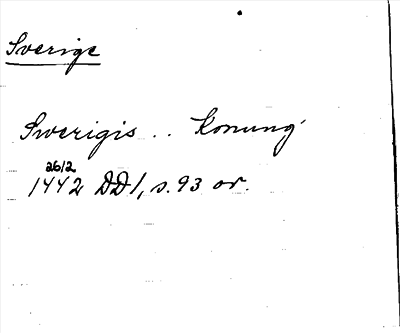 Sverige
Swerigis .. Konung
26/2
1442 DD1, s. 93 or.